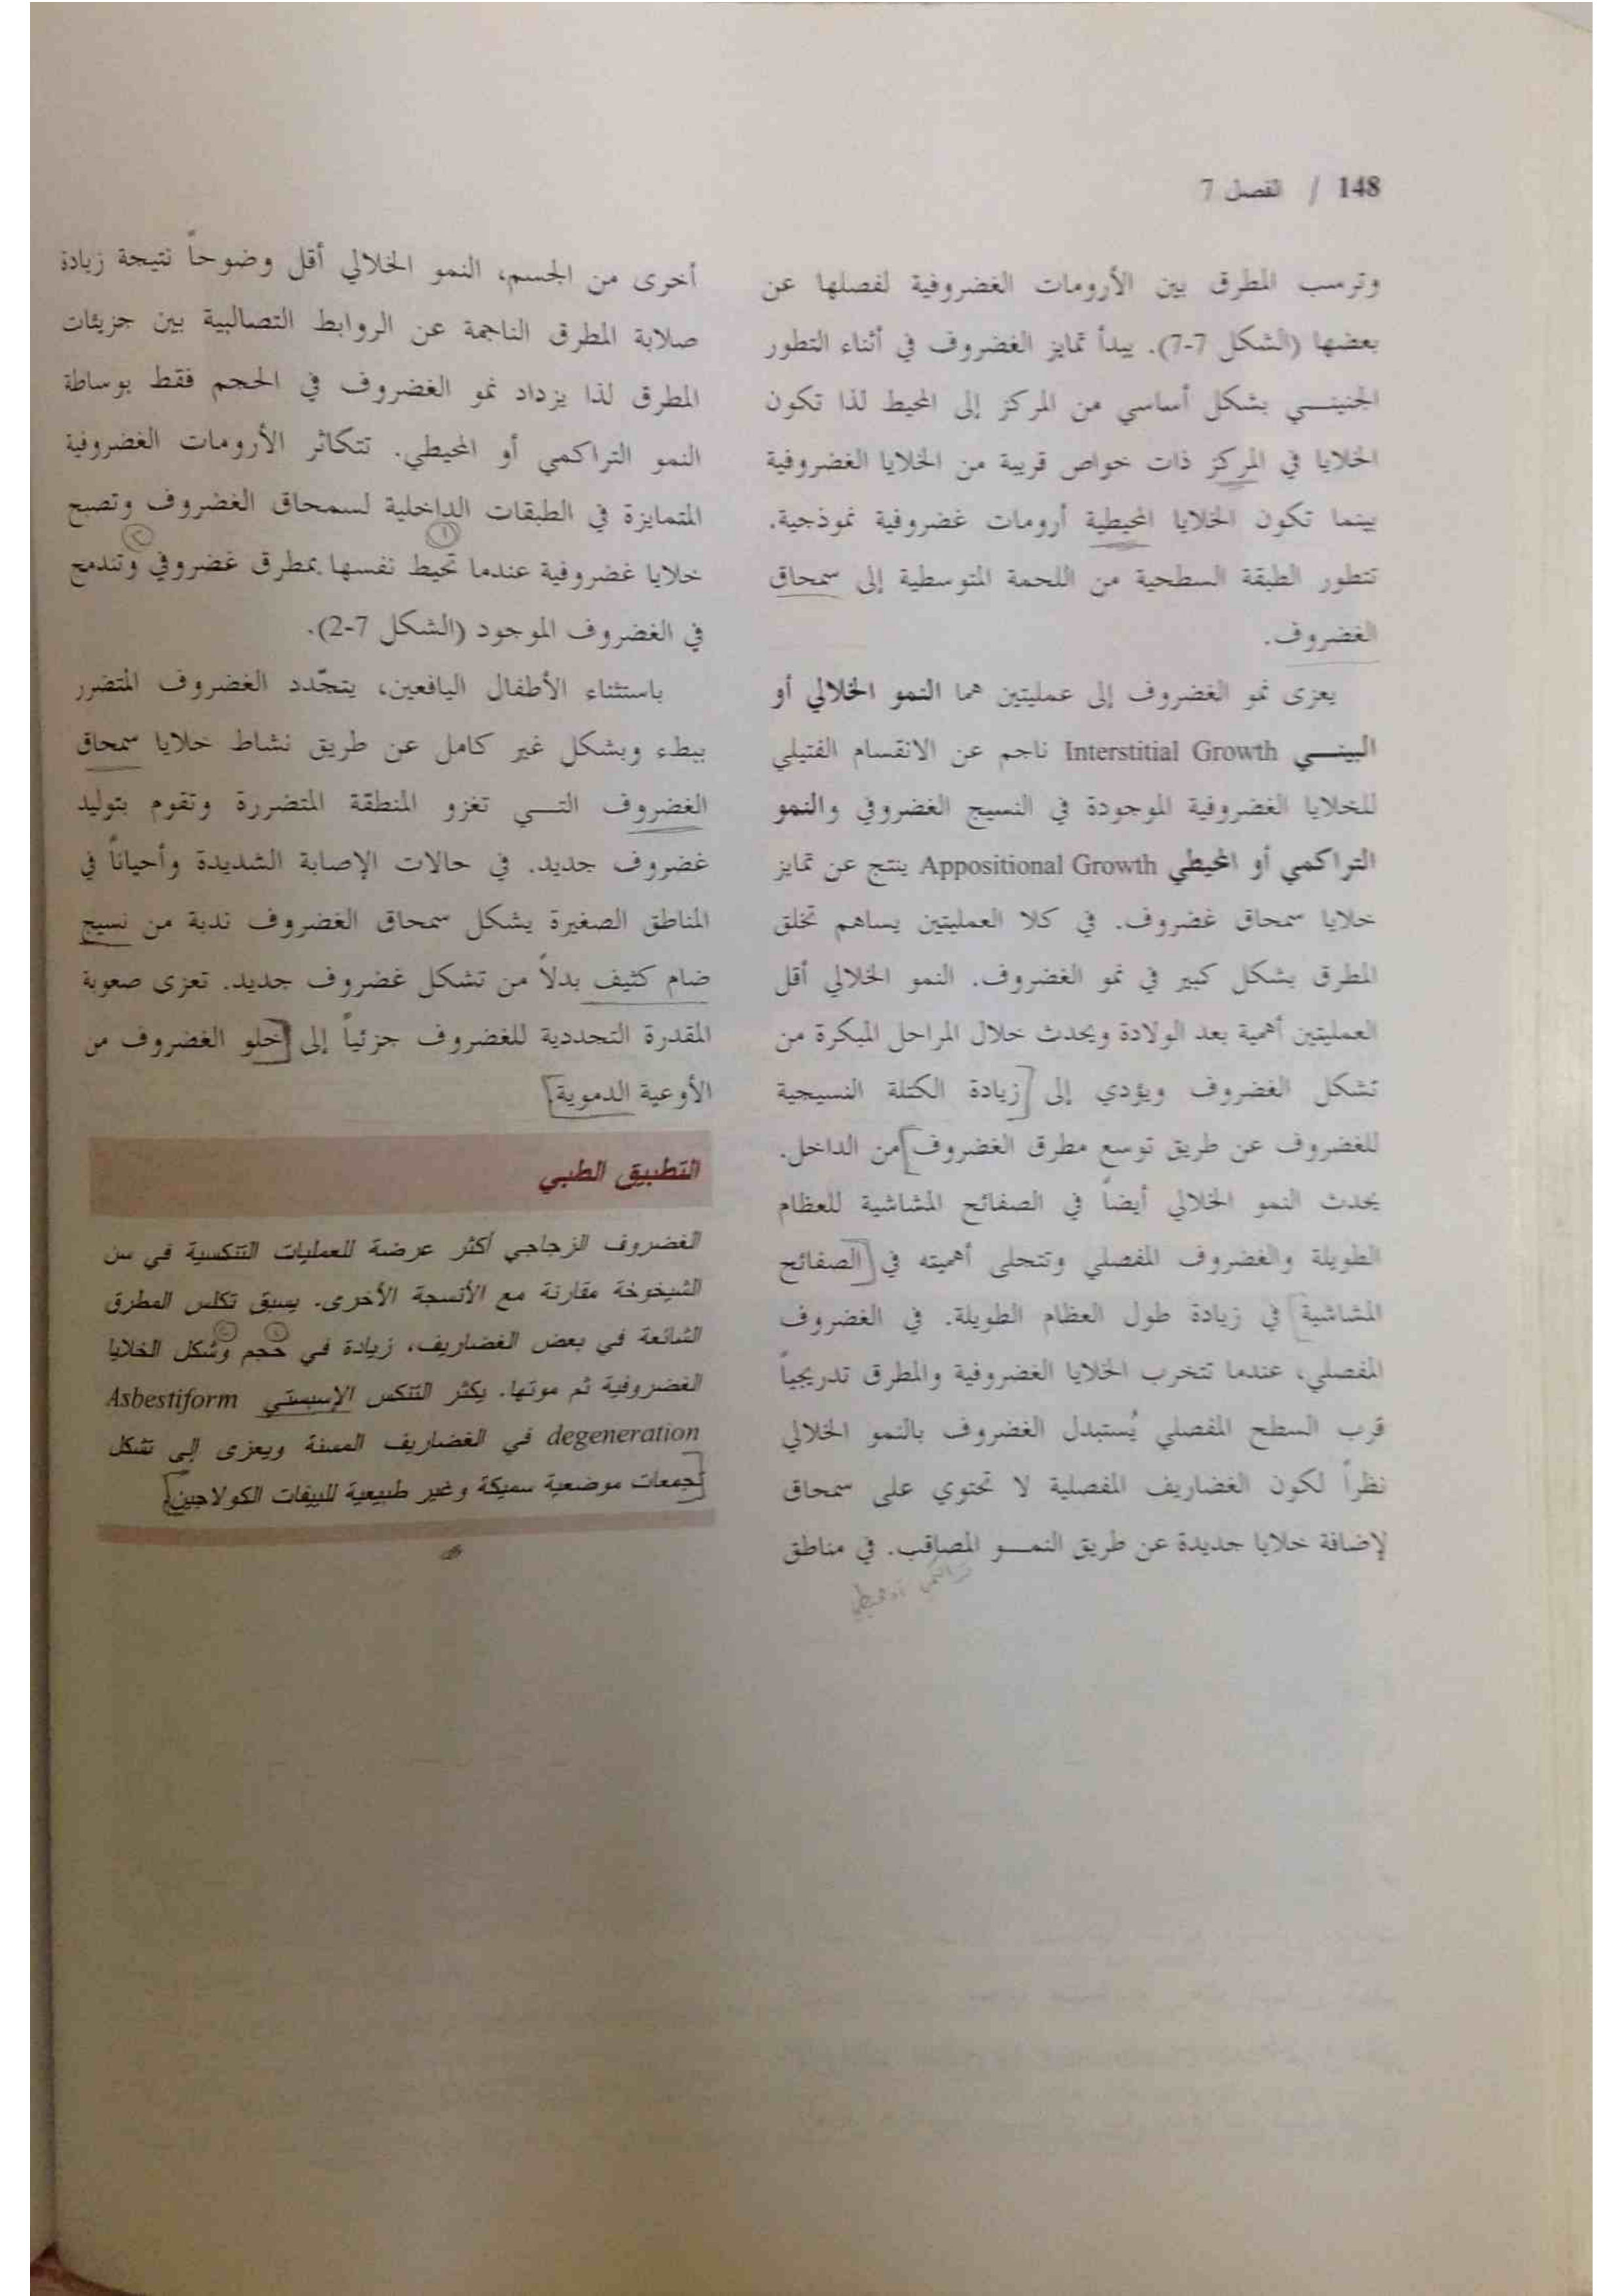 148 / الفصل 7
وترسب المطرق بين الأرومات الغضروفية لفصلها عن
بعضها (الشكل 7-7). يبدأ تمايز الغضروف في أثناء التطور
الجنينـــي بشكل أساسي من المركز إلى المحيط لذا تكون
الخلايا في المركز ذات خواص قريبة من الخلايا الغضروفية
بينما تكون الخلايا المحيطية أرومات غضروفية نموذجية.
تتطور الطبقة السطحية من اللحمة المتوسطية إلى سمحاق
الغضروف.
يعزى نمو الغضروف إلى عمليتين هما النمو الخلالي أو
البينـــي Interstitial Growth ناجم عن الانقسام الفتيلي
للخلايا الغضروفية الموجودة في النسيج الغضروفي والنمو
التراكمي أو المحيطي Appositional Growth ينتج عن تمايز
خلايا سمحاق غضروف. في كلا العمليتين يساهم تخلق
المطرق بشكل كبير في نمو الغضروف. النمو الخلالي أقل
العمليتين أهمية بعد الولادة ويحدث خلال المراحل المبكرة من
تشكل الغضروف ويؤدي إلى [زيادة الكتلة النسيجية
للغضروف عن طريق توسع مطرق الغضروف] من الداخل.
يحدث النمو الخلالي أيضاً في الصفائح المشاشية للعظام
الطويلة والغضروف المفصلي وتتجلى أهميته في [الصفائح
المشاشية] في زيادة طول العظام الطويلة. في الغضروف
المفصلي، عندما تتخرب الخلايا الغضروفية والمطرق تدريجياً
قرب السطح المفصلي يُستبدل الغضروف بالنمو الخلالي
نظراً لكون الغضاريف المفصلية لا تحتوي على سمحاق
لإضافة خلايا جديدة عن طريق النمـــو المصاقب. في مناطق
تراكمي أو محيطي
أخرى من الجسم، النمو الخلالي أقل وضوحاً نتيجة زيادة
صلابة المطرق الناجمة عن الروابط التصالبية بين جزيئات
المطرق لذا يزداد نمو الغضروف في الحجم فقط بوساطة
النمو التراكمي أو المحيطي. تتكاثر الأرومات الغضروفية
المتمايزة في الطبقات الداخلية لسمحاق الغضروف وتصبح
١ ٢
خلايا غضروفية عندما تحيط نفسها بمطرق غضروفي وتندمج
في الغضروف الموجود (الشكل 7-2).
باستثناء الأطفال اليافعين، يتجّدد الغضروف المتضرر
ببطء وبشكل غير كامل عن طريق نشاط خلايا سمحاق
الغضروف التـــي تغزو المنطقة المتضررة وتقوم بتوليد
غضروف جديد. في حالات الإصابة الشديدة وأحياناً في
المناطق الصغيرة يشكل سمحاق الغضروف ندبة من نسيج
ضام كثيف بدلاً من تشكل غضروف جديد. تعزى صعوبة
المقدرة التجددية للغضروف جزئياً إلى [خلو الغضروف من
الأوعية الدموية].
التطبيق الطبي
الغضروف الزجاجي أكثر عرضة للعمليات التنكسية في سن
الشيخوخة مقارنة مع الأنسجة الأخرى. يسبق تكلس المطرق
١ ٢
الشائعة في بعض الغضاريف، زيادة في حجم وشكل الخلايا
الغضروفية ثم موتها. يكثر التنكس الإسبستي Asbestiform
degeneration في الغضاريف المسنة ويعزى إلى تشكل
[تجمعات موضعية سميكة وغير طبيعية للييفات الكولاجين].